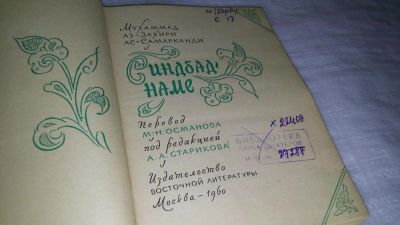 Мухаммад
аз-Захири
ас-Самарканди
Синдбад-
наме
Перевод
М.Н.Османова
под редакцией
А.А.Старикова
Издательство
восточной литературы
Москва-1960
С 17
БИБЛИОТЕКА
27287